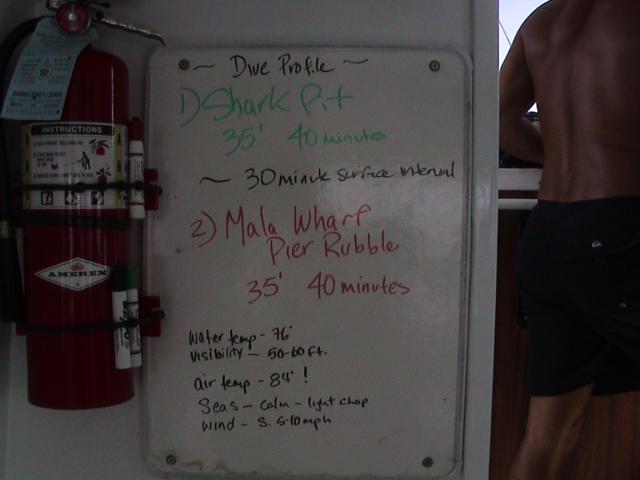 ~ Dive Profile ~
1) Shark Pit
35' 40 minutes
~ 30 minute Surface Interval
2) Mala Wharf
Pier Rubble
35' 40 minutes
Water temp - 76°
Visibility - 50-60 ft.
air temp - 84° !
Seas - Calm - light chop
Wind - S. 5-10 mph
INSTRUCTIONS
AMEREX